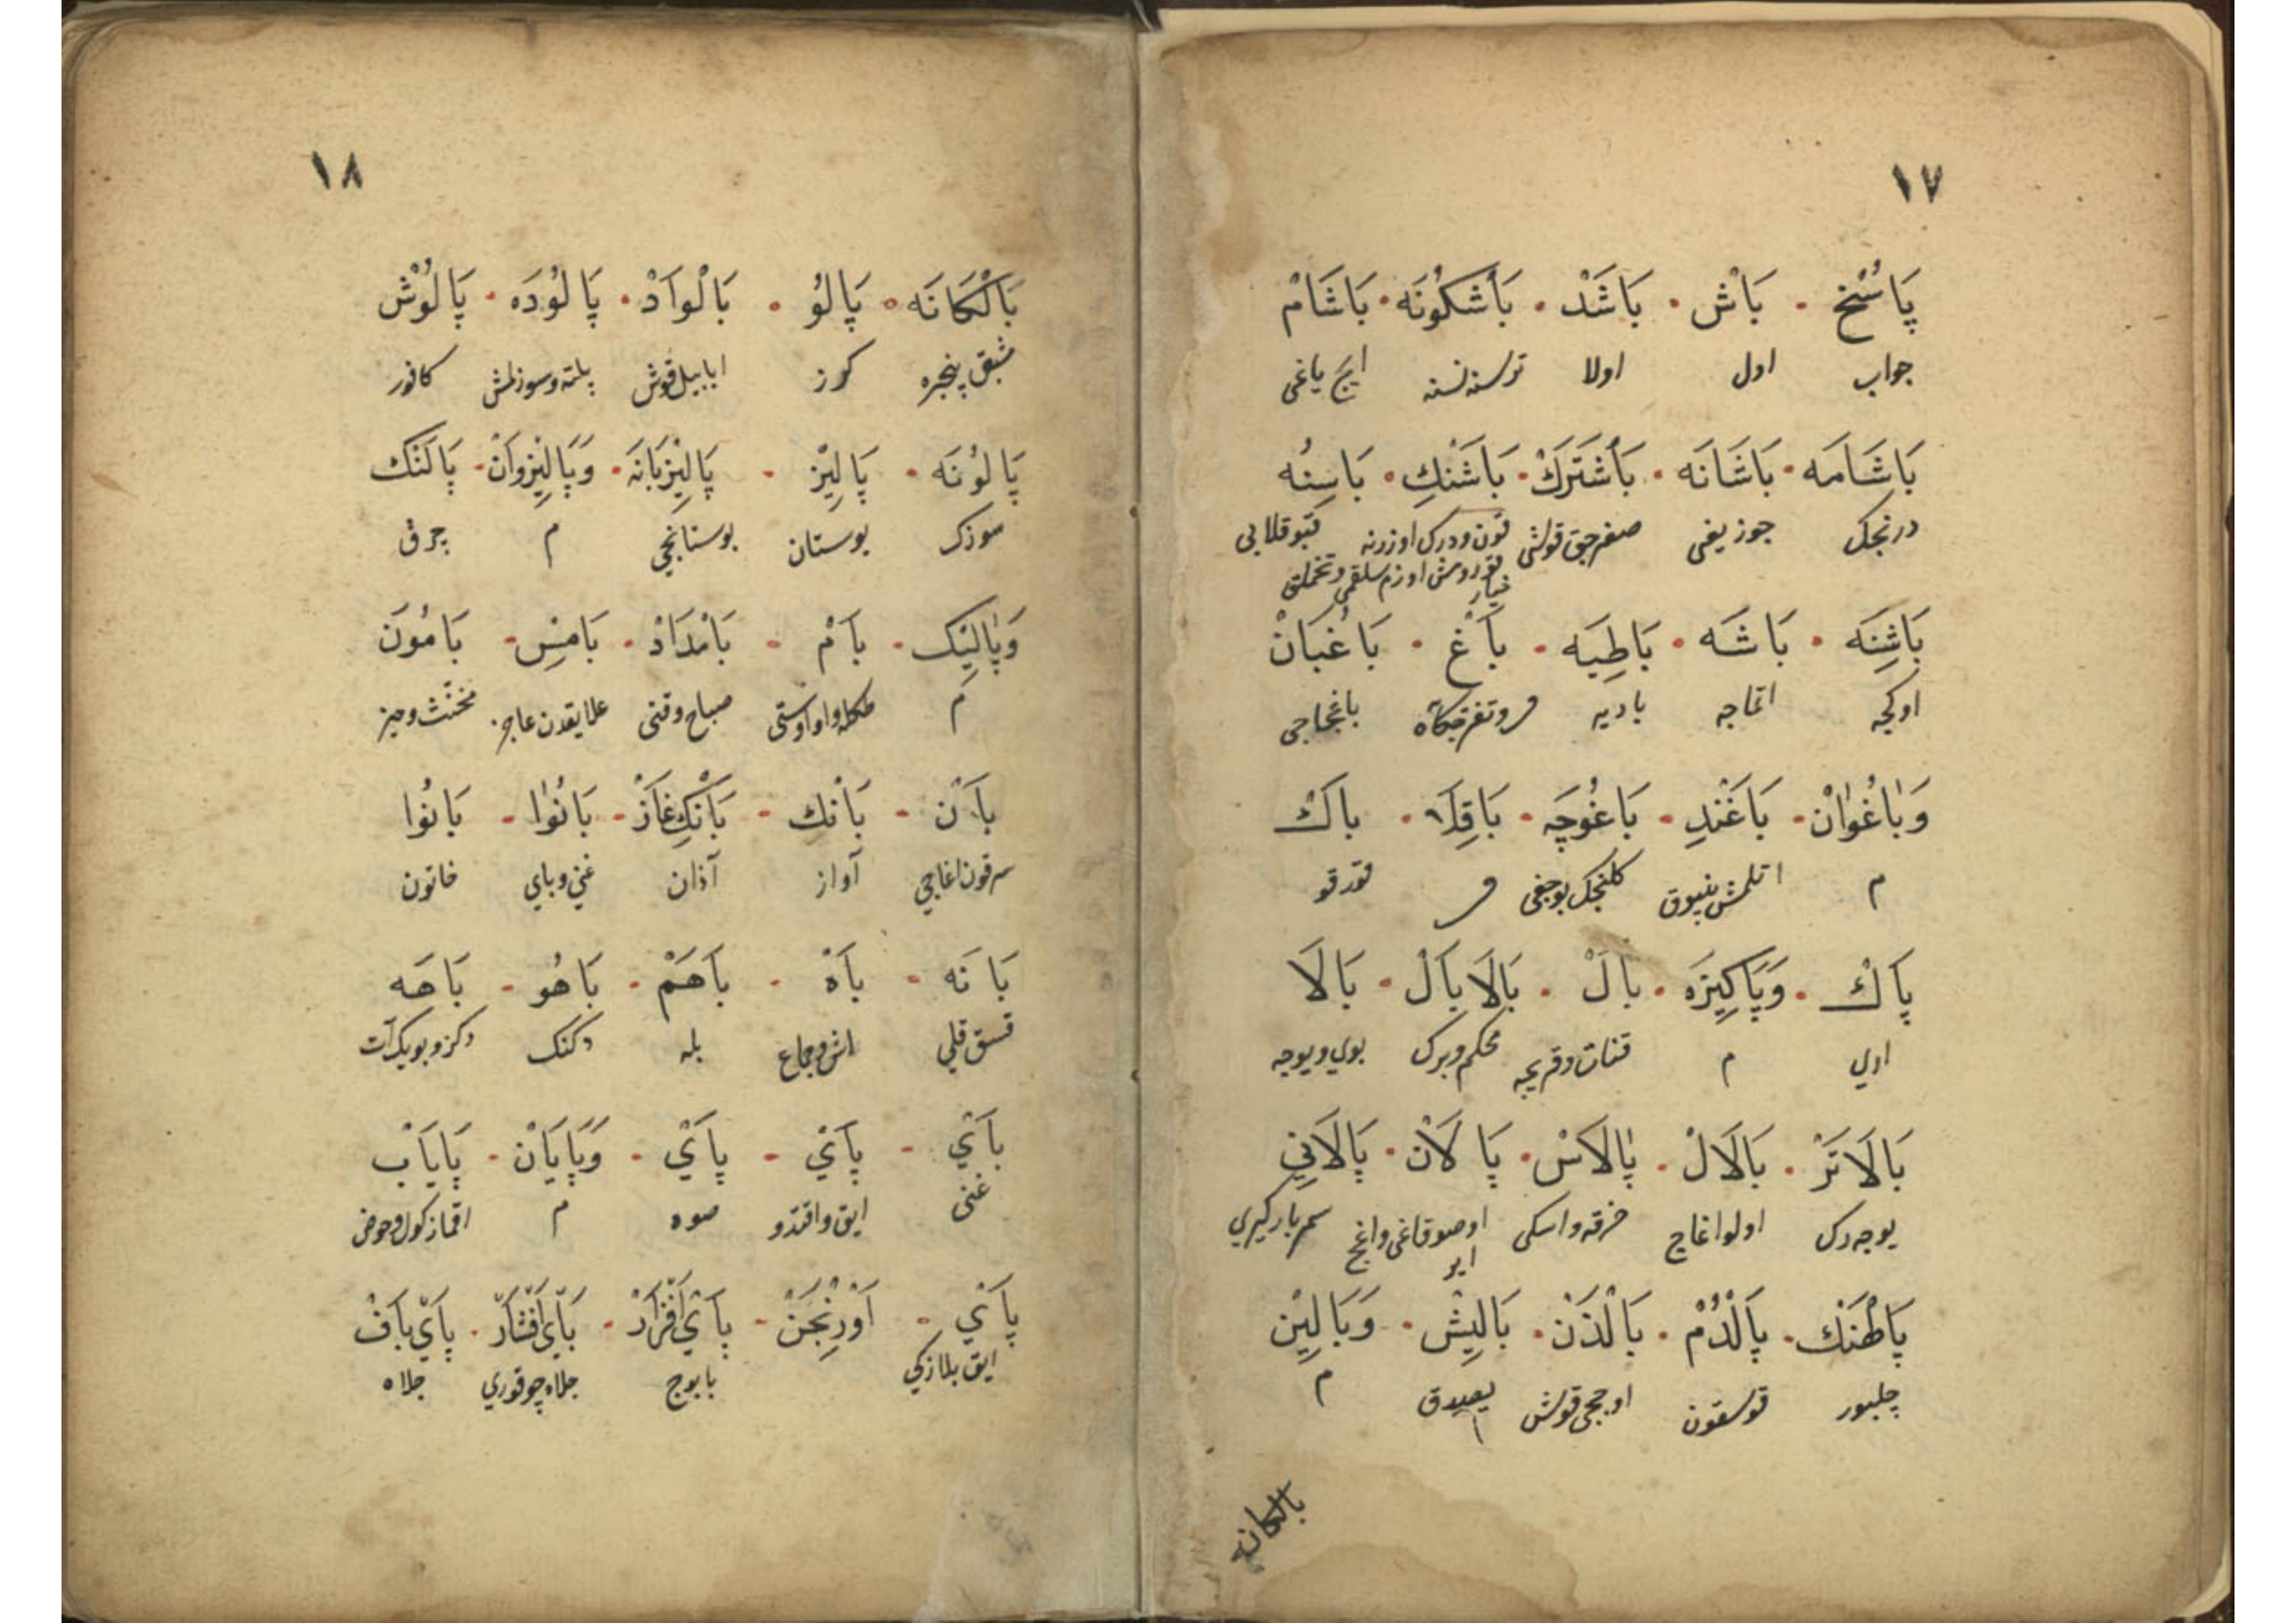 ١٧
پَاسُخ بَاش بَاشَد بَاشکُونَه بَاشَام
جواب اول اولا ترسنه نسنه ایچ یاغی
بَاشَامَه بَاشَانَه بَاشتَرَك بَاشَنك بَاسِنُه
درنجك جوز یغی صغرجق قوشی
بَاشِنَه بَاشَه بَاطِیَه بَاغ بَاغُبَان
اوکچه اتماجه بادیه باغچاجی
وَبَاغُوَان بَاغَند بَاغُوچَه بَاقِلَا بَاك
م اتلمش پنبوق کلنجك بوجغی قورقو
پَاك وَپَاکِیزَه بَال بَالَابَال بَالَا
اری م قنات وقریجه محکم وبرك بوی ویوجه
بَالَاتَر بَالَال پَالَاس پَالَان پَالَانِی
یوجه رك اولو اغاج خرقه واسکی سمر بارکیری
پَالهَنك پَالدُم بَالذَن بَالِیش وَبَالِین
چلبور قوسقون اوججی قوش یصدق م
بالکانه
١٨
بَالکَانَه پَالُو بَالوَاد پَالُودَه پَالُوش
مشبق پنجره کوز ابابیل قوش پلته وسوزلمش کافور
پَالُونَه پَالِیز پَالِیزبَانَه وَپَالِیزوَان پَالَنك
سوزك بوستان بوستانجی م چرق
وَپَالِیك بَام بَامدَاد بَامِس بَامُون
م صباح وقتی مخنث وحیز
بَان بَانك بَانكِ غَاز بَانُوَا بَانُوا
آواز آذان غنی وبای خاتون
بَانَه بَاه بَاهَم بَاهُو بَاهَه
قسق قلی اش وجماع بله دکنك
بَای پَای پَای وَپَایَان پَایَاب
غنی صوه م
پَای اَورِنجَن پَای اَفزَار بَای اَفشَار پَای بَاف
ایق بلازکی بابوج جلاه چوقوری جلاه